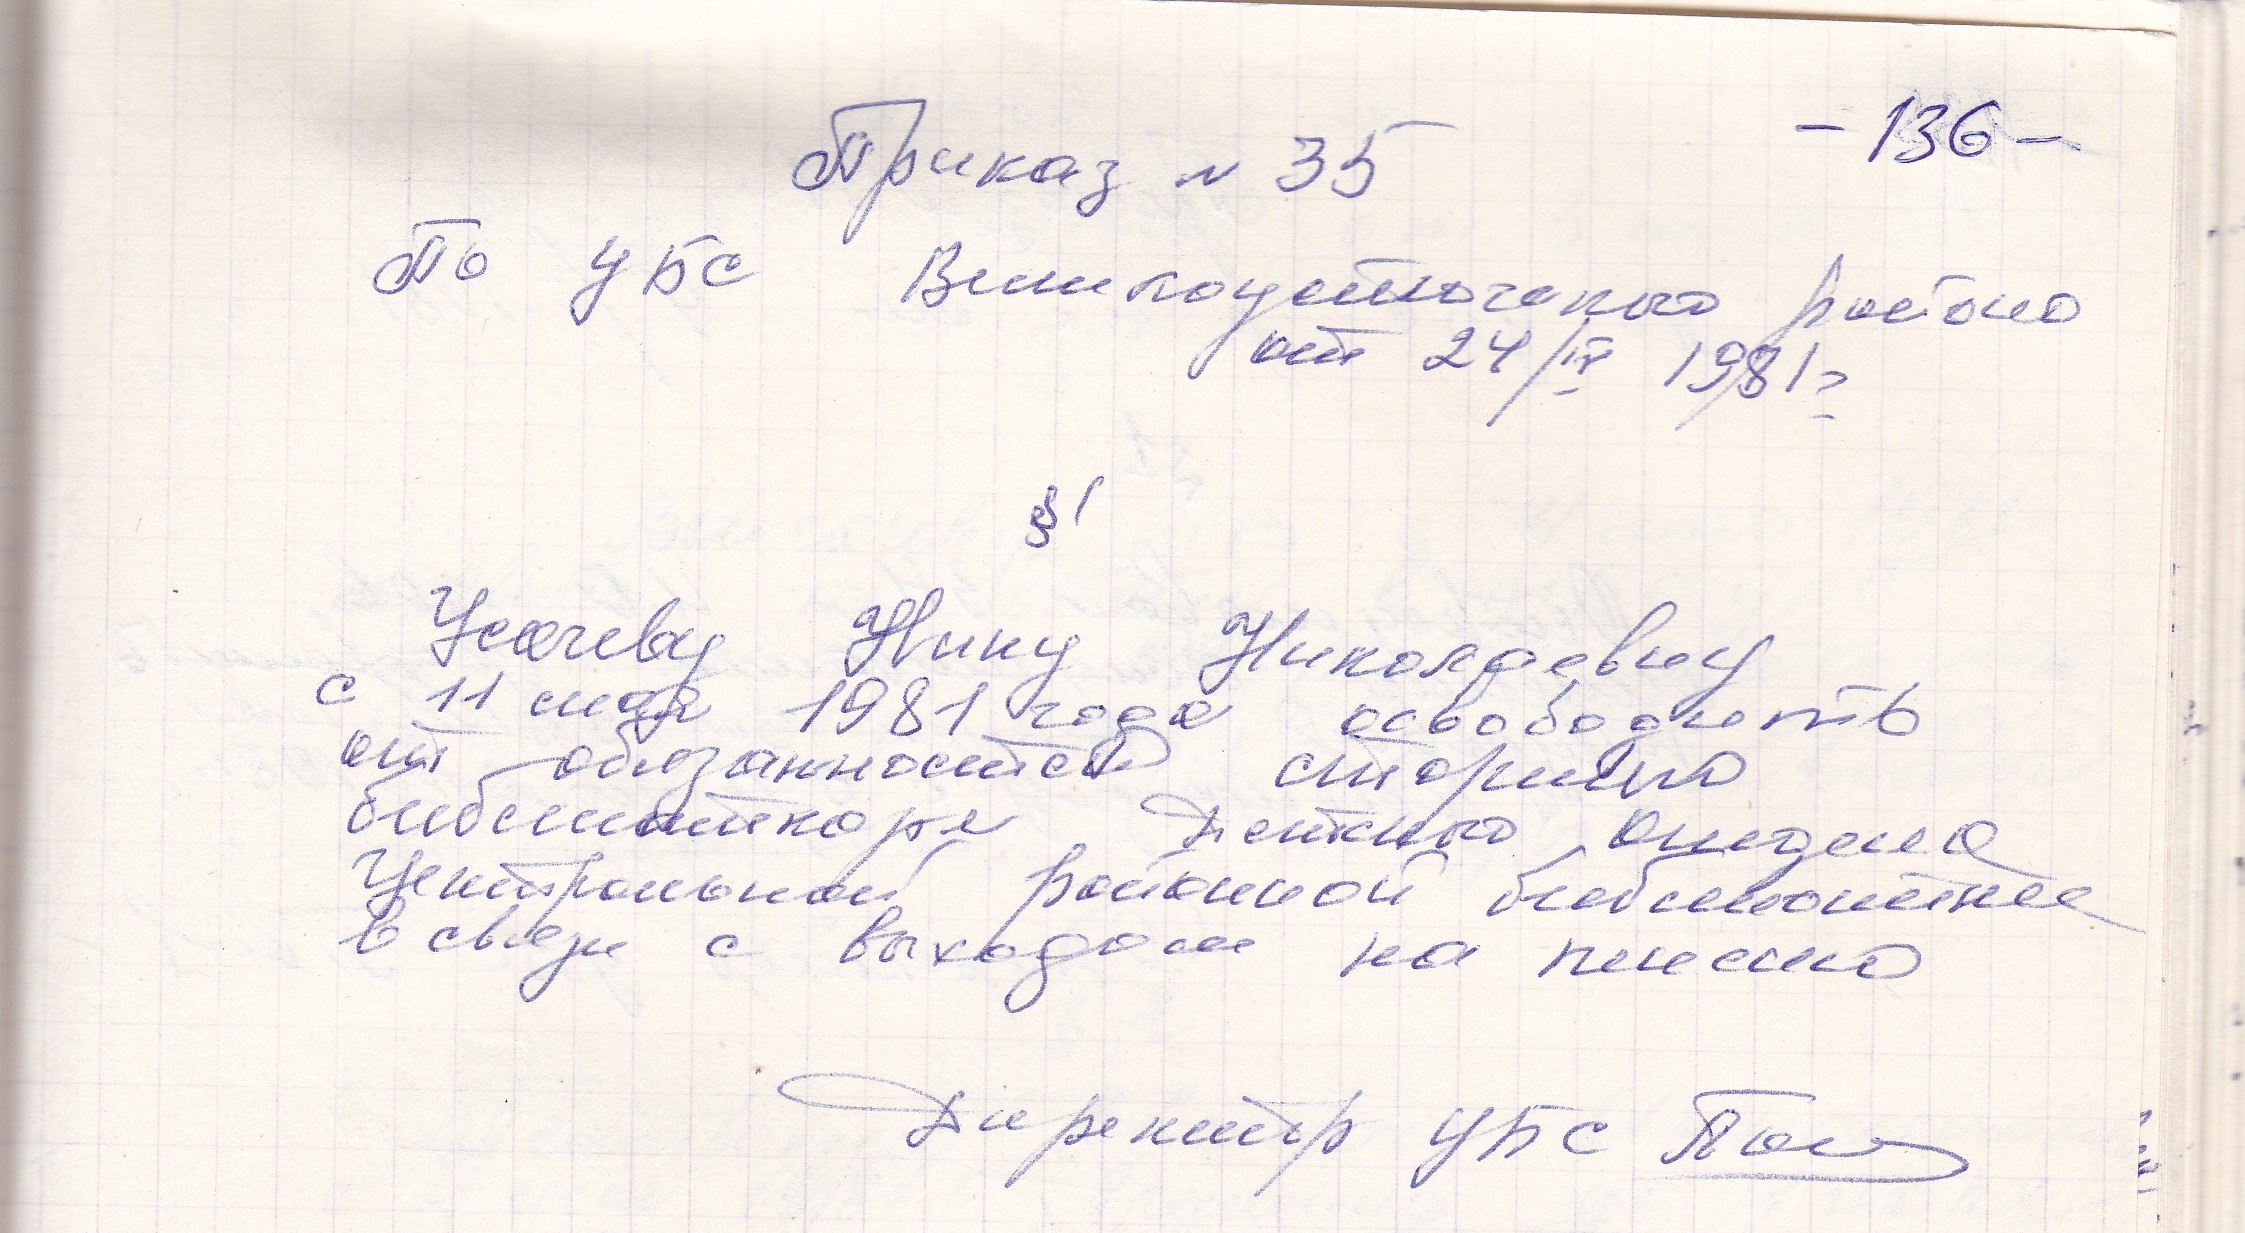 - 136 -
Приказ N 35
По ЦБС Великоустюгского района
от 24/IV 1981 г
§ 1
Усачеву Нину Николаевну
с 11 мая 1981 года освободить
от обязанностей старшего
библиотекаря Детского отдела
Центральной районной библиотеки
в связи с выходом на пенсию
Директор ЦБС